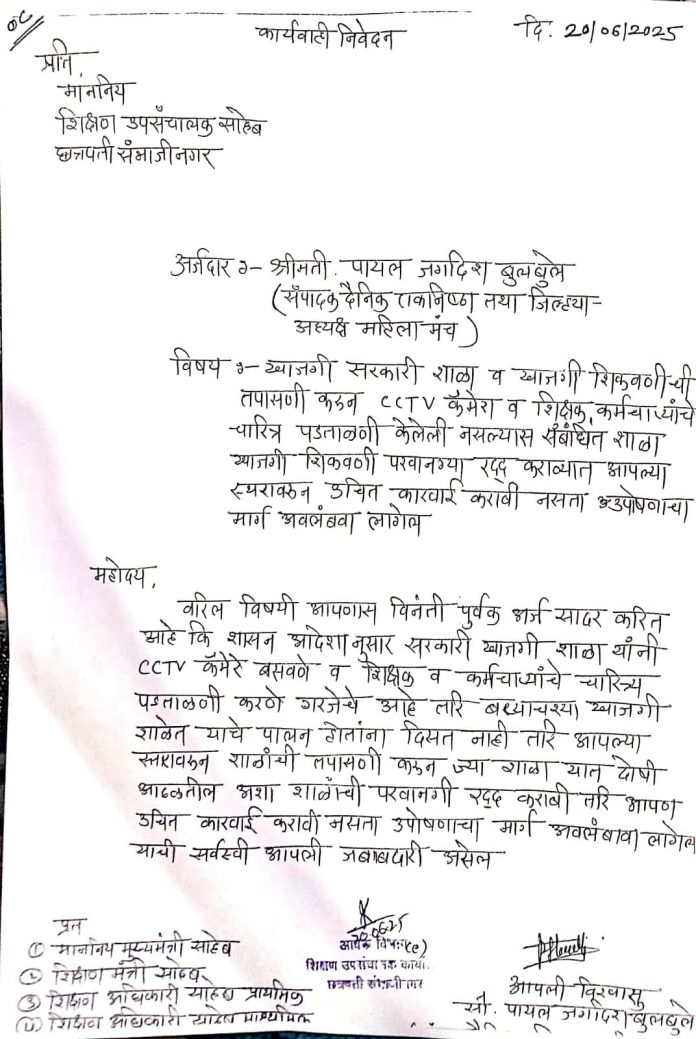 OC
कार्यवाही निवेदन
दि. 20/06/2025
प्रति,
माननिय
शिक्षण उपसंचालक साहेब
छत्रपती संभाजीनगर
अर्जदार :- श्रीमती. पायल जगदिश बुलबुले
(संपादक दैनिक तथा जिल्हया-
अध्यक्ष महिला मंच)
विषय :- खाजगी सरकारी शाळा व खाजगी शिकवणीची
तपासणी करुन CCTV कॅमेरा व शिक्षक, कर्मचाऱ्यांचे
चारित्र पडताळणी केलेली नसल्यास संबंधित शाळा
खाजगी शिकवणी परवानग्या रद्द कराव्यात आपल्या
स्थरावरुन उचित कारवाई करावी नसता उपोषणाचा
मार्ग अवलंबवा लागेल
महोदय,
वरिल विषयी आपणास विनंती पुर्वक अर्ज सादर करित
आहे कि शासन आदेशानुसार सरकारी खाजगी शाळा यांनी
CCTV कॅमेरे बसवणे व शिक्षक व कर्मचाऱ्यांचे चारित्र्य
पडताळणी करणे गरजेचे आहे तरि बऱ्याचश्या खाजगी
शाळेत याचे पालन होतांना दिसत नाही तरि आपल्या
स्तरावरुन शाळांची तपासणी करुन ज्या शाळा यात दोषी
आढळतील अशा शाळांची परवानगी रद्द करावी तरि आपण
उचित कारवाई करावी नसता उपोषणाचा मार्ग अवलंबावा लागेल
याची सर्वस्वी आपली जबाबदारी असेल
प्रत
① माननिय मुख्यमंत्री साहेब
② शिक्षण मंत्री साहेब
③ शिक्षण अधिकारी साहेब प्राथमिक
④ शिक्षण अधिकारी साहेब माध्यमिक
20.06.25
आवक विभाग
शिक्षण उपसंचालक कार्या.
छत्रपती संभाजीनगर
आपली विश्वासु
सौ. पायल जगदिश बुलबुले